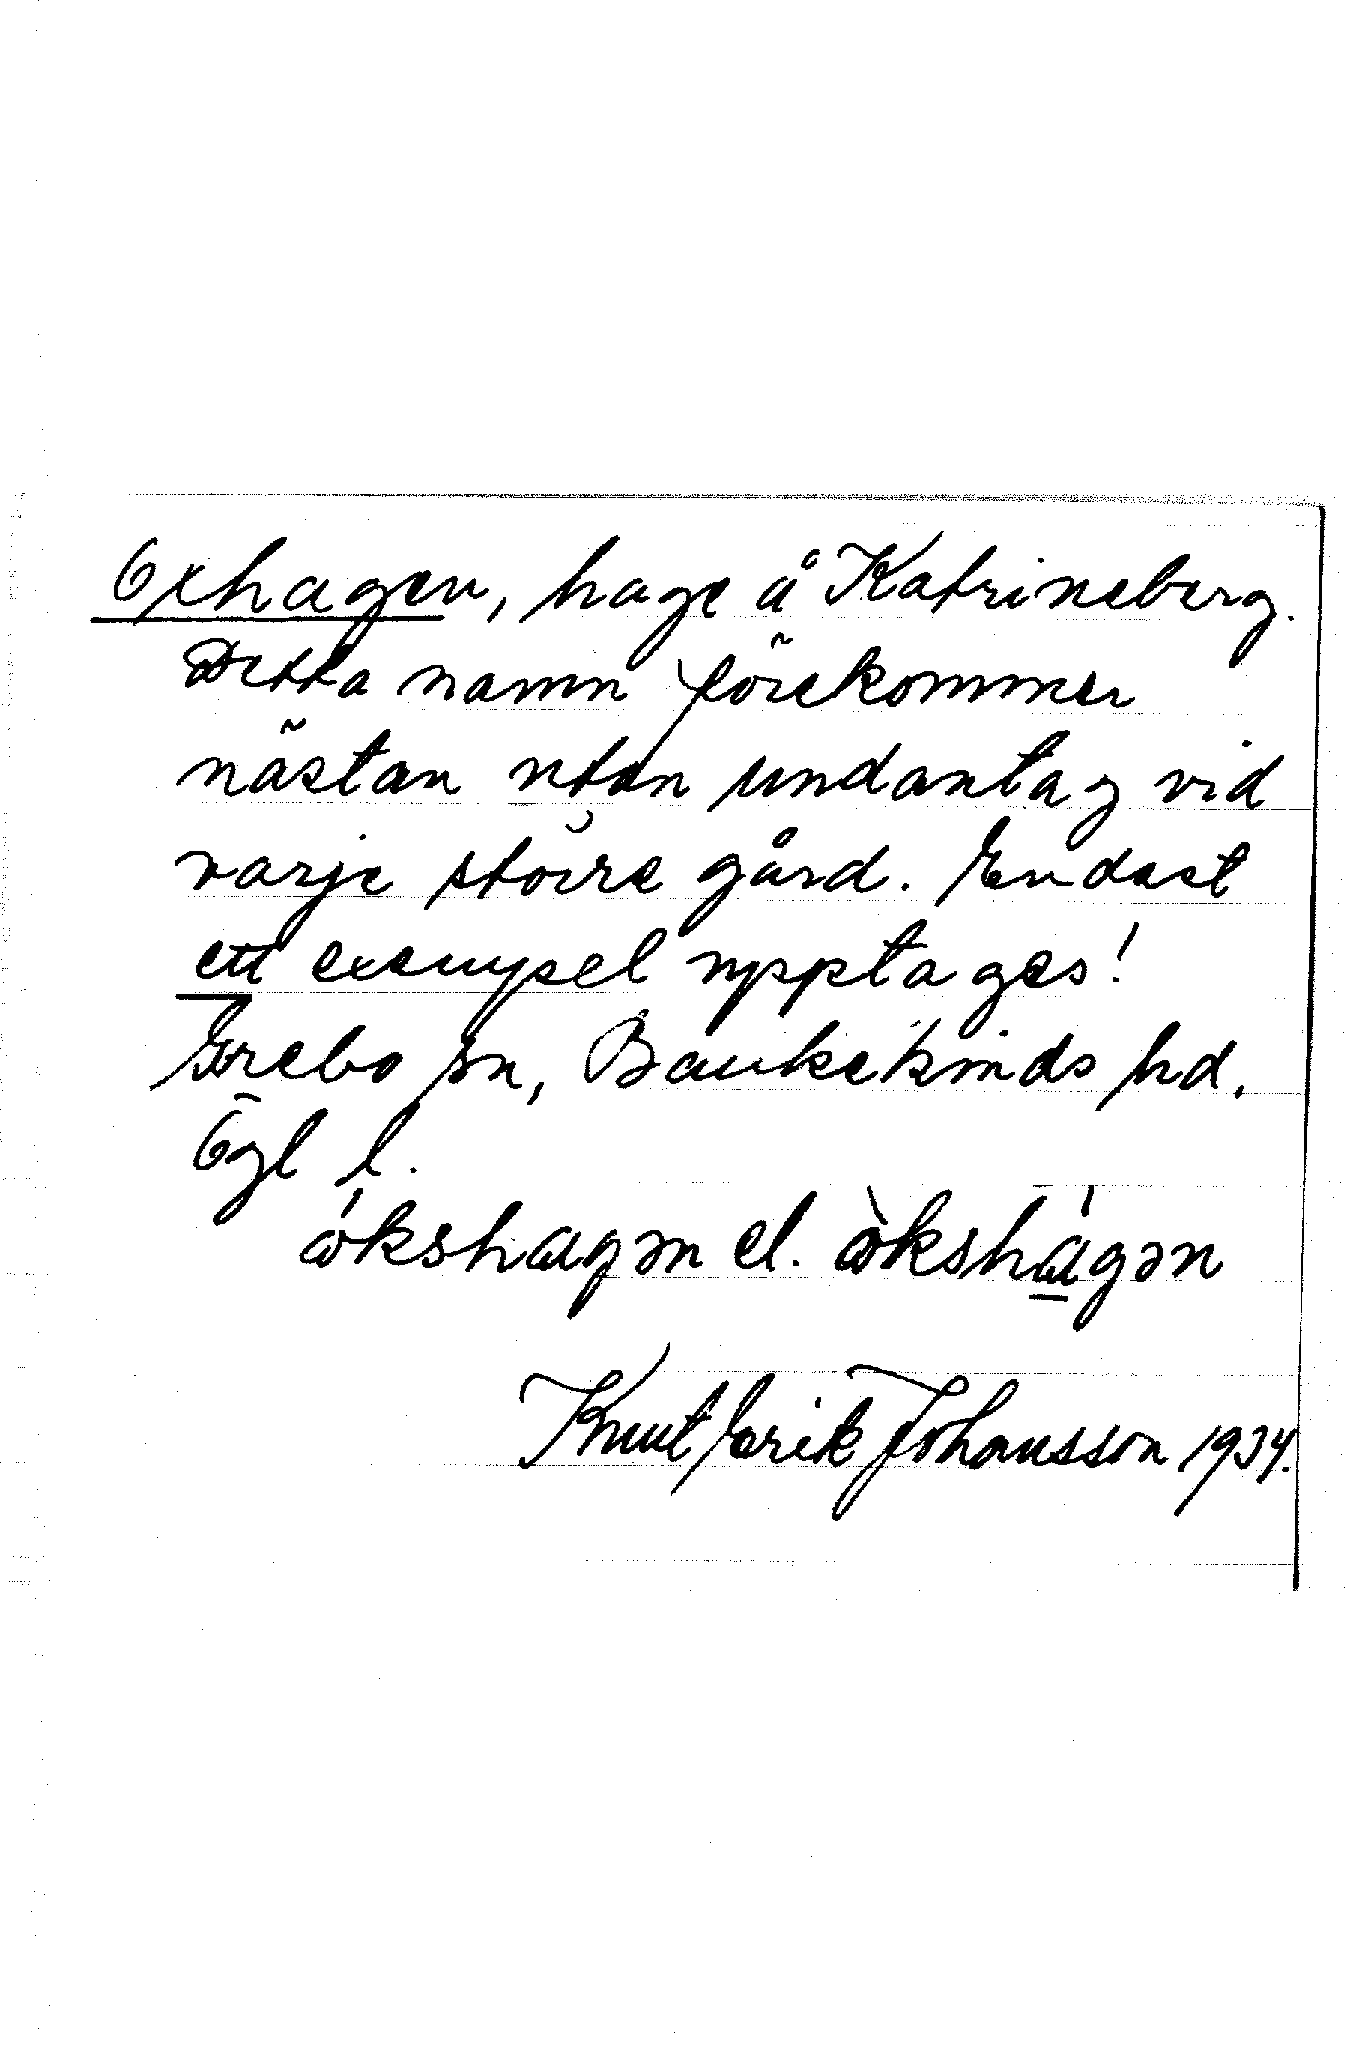 Oxhagen, hage å Katrineberg.
Detta namn förekommer
nästan utan undantag vid
varje större gård. Endast
ett exempel upptages!
Grebo sn, Bankekinds hd,
Ögl l.
ɷ́kshagən el. ɷ̀kshágən
Knut Erik Johansson 1934.